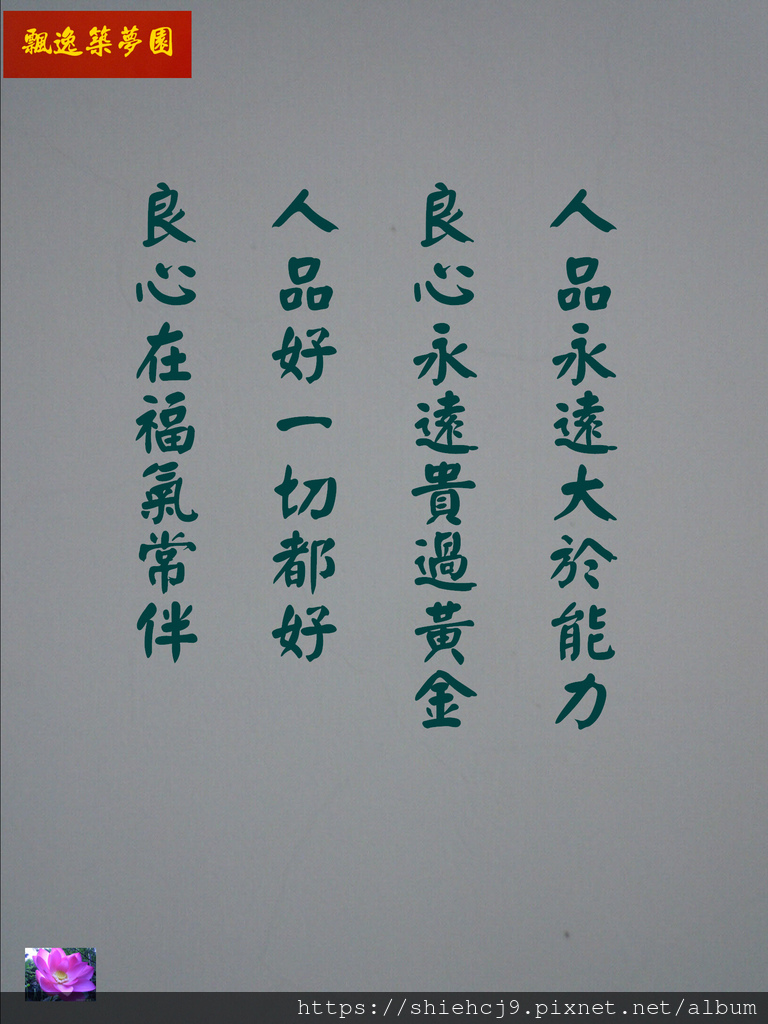 飄逸築夢園
人品永遠大於能力
良心永遠貴過黃金
人品好一切都好
良心在福氣常伴
https://shiehcj9.pixnet.net/album